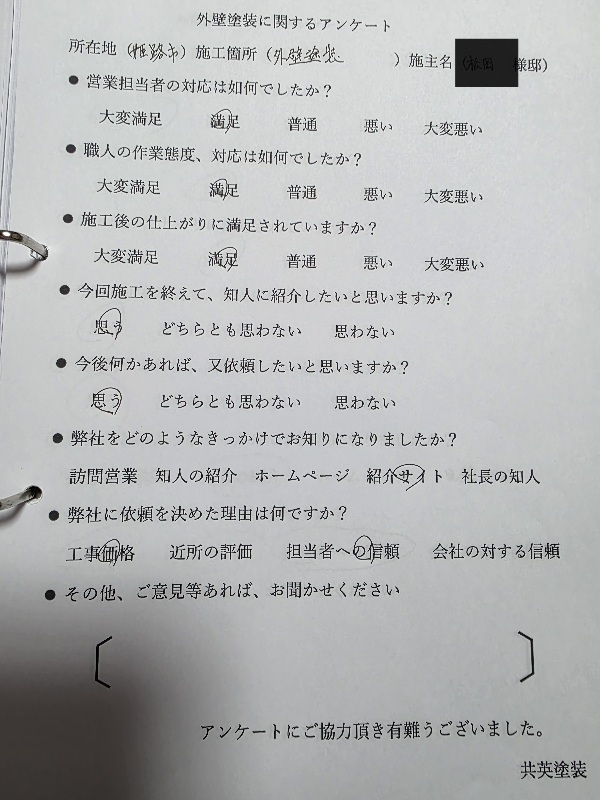 外壁塗装に関するアンケート
所在地（姫路市）施工箇所（外壁塗装　　　）施主名（　　様邸）
● 営業担当者の対応は如何でしたか？
大変満足　満足　普通　悪い　大変悪い
● 職人の作業態度、対応は如何でしたか？
大変満足　満足　普通　悪い　大変悪い
● 施工後の仕上がりに満足されていますか？
大変満足　満足　普通　悪い　大変悪い
● 今回施工を終えて、知人に紹介したいと思いますか？
思う　どちらとも思わない　思わない
● 今後何かあれば、又依頼したいと思いますか？
思う　どちらとも思わない　思わない
● 弊社をどのようなきっかけでお知りになりましたか？
訪問営業　知人の紹介　ホームページ　紹介サイト　社長の知人
● 弊社に依頼を決めた理由は何ですか？
工事価格　近所の評価　担当者への信頼　会社の対する信頼
● その他、ご意見等あれば、お聞かせください
〔　　　〕
アンケートにご協力頂き有難うございました。
共英塗装